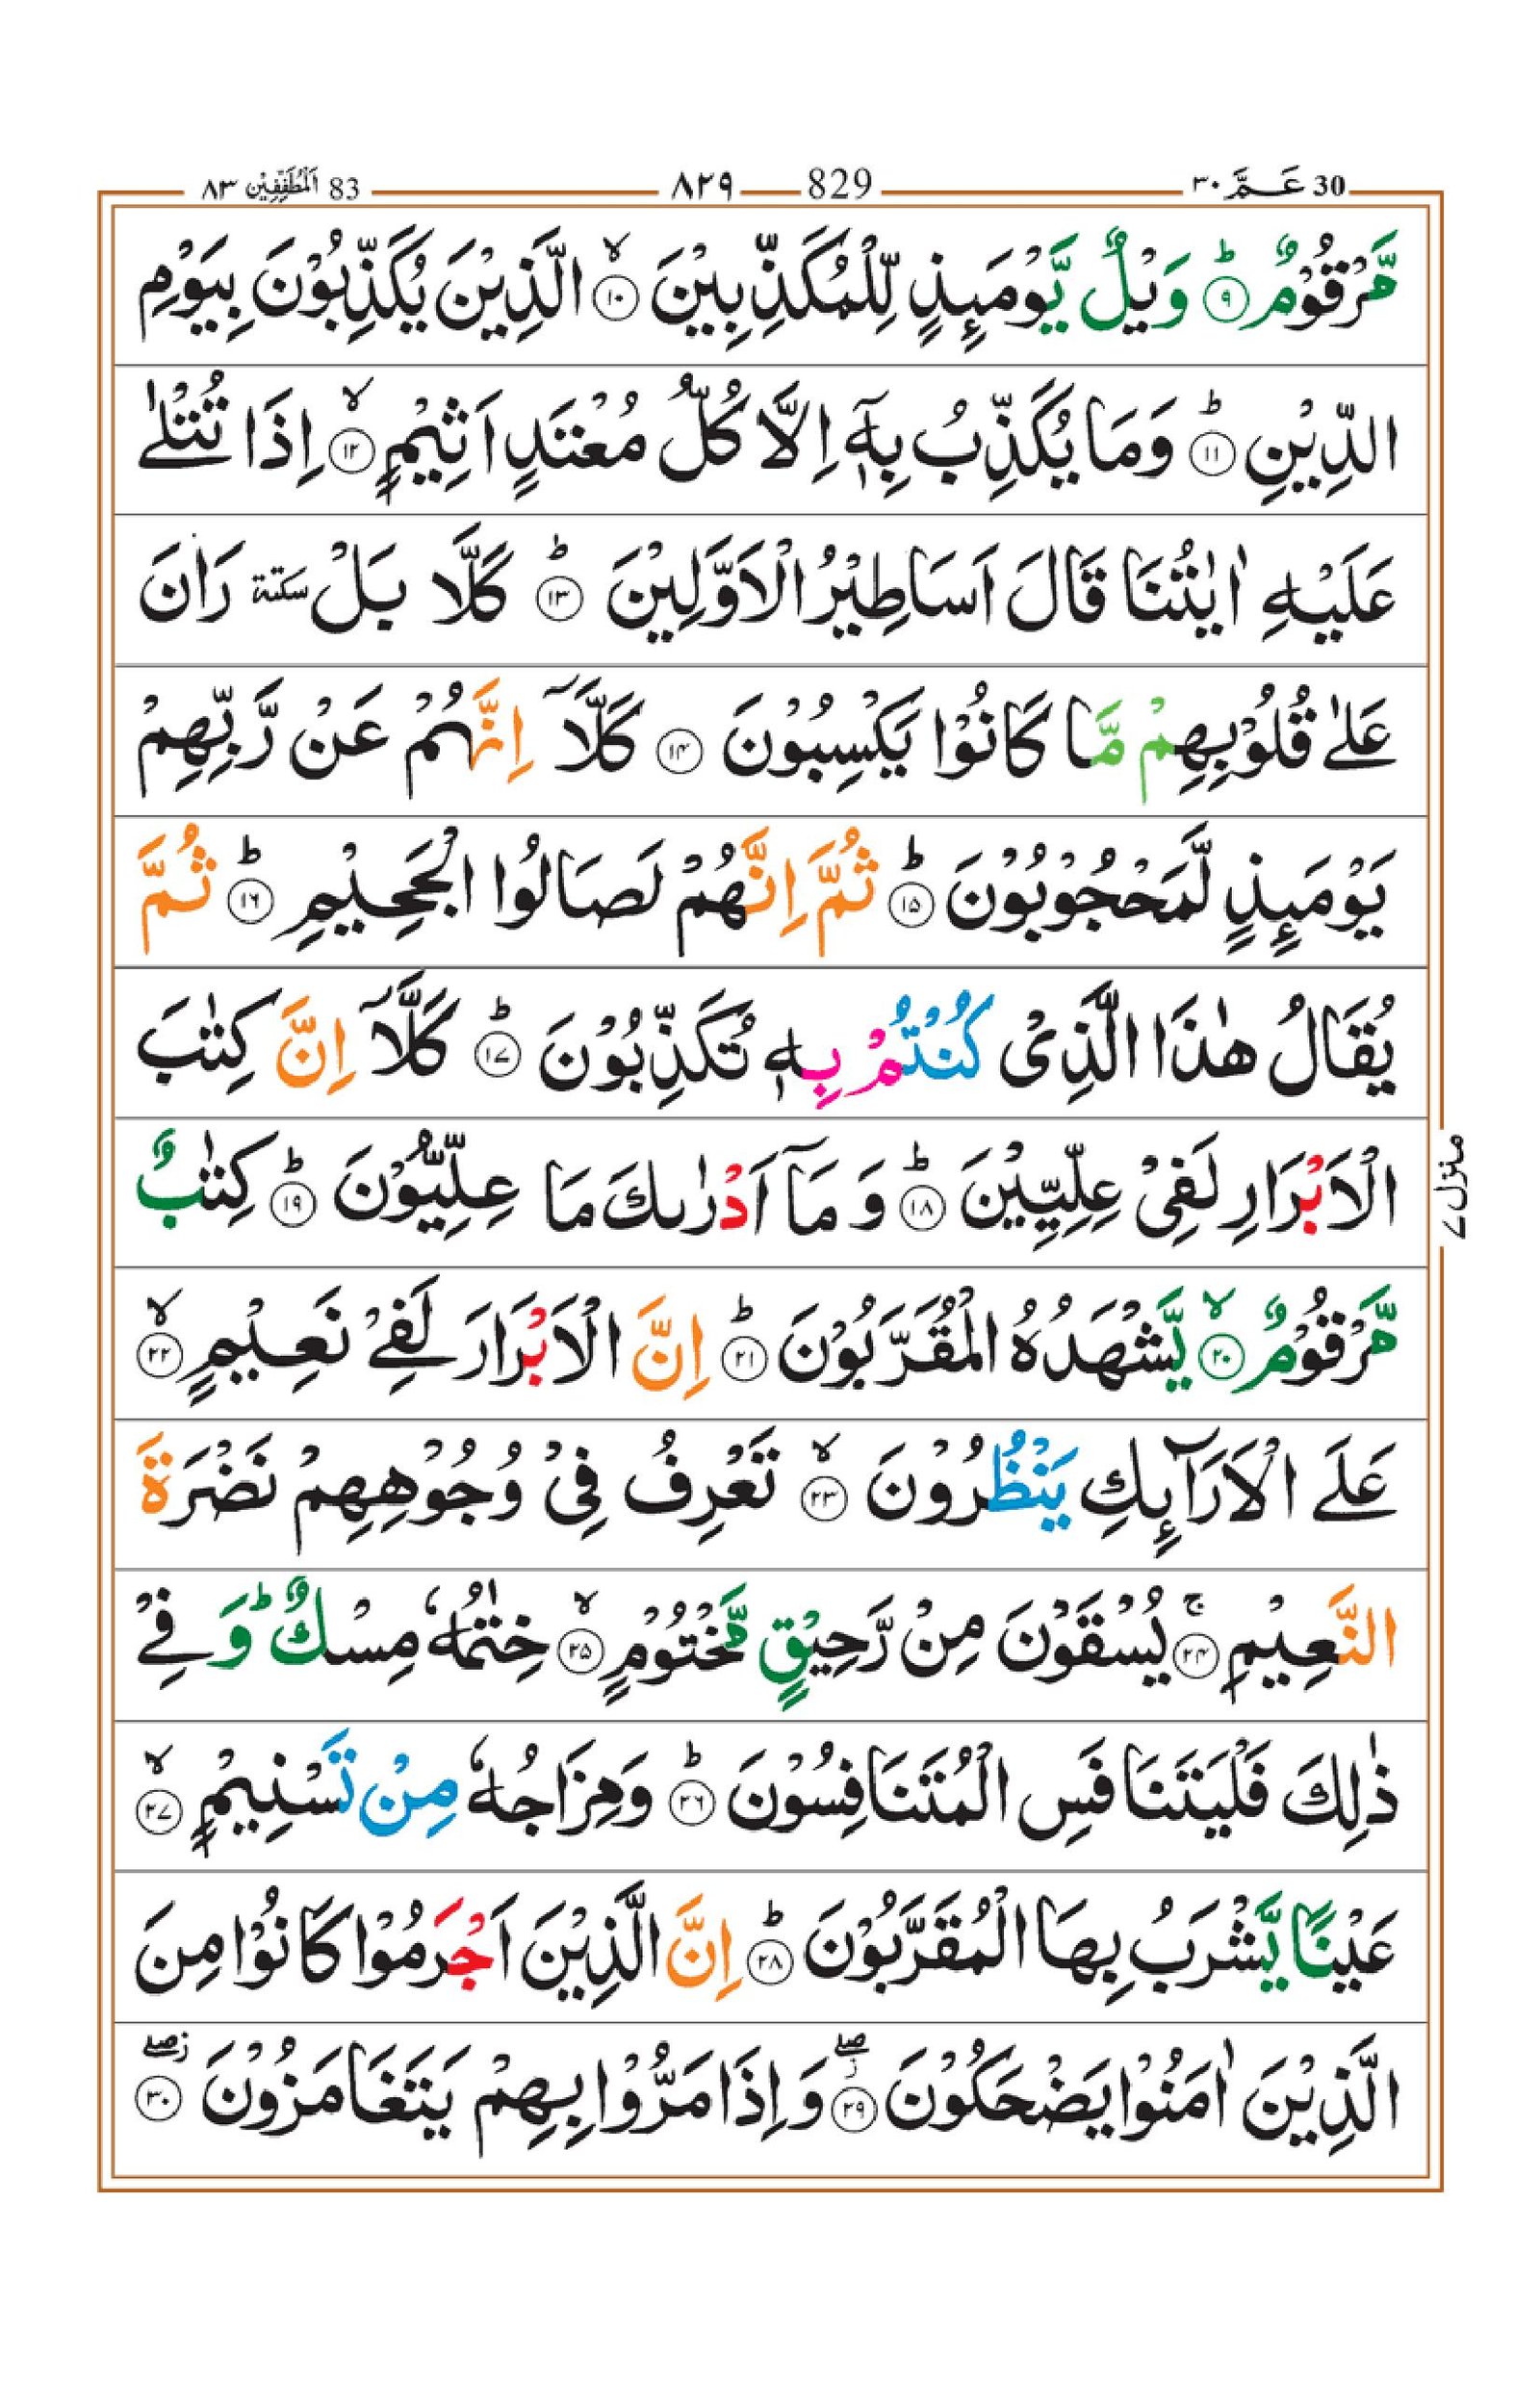 ٨٣ اَلْمُطَفِّفِيْن 83 ٨٢٩ 829 ٣٠ عَـمَّ 30
مَّرْقُوْمٌ ؕ‏﴿۹﴾ وَيْلٌ يَّوْمَىِٕذٍ لِّلْمُكَذِّبِيْنَ ۙ‏﴿۱۰﴾ الَّذِيْنَ يُكَذِّبُوْنَ بِيَوْمِ
الدِّيْنِ ؕ‏﴿۱۱﴾ وَمَا يُكَذِّبُ بِهٖۤ اِلَّا كُلُّ مُعْتَدٍ اَثِيْمٍ ۙ‏﴿۱۲﴾ اِذَا تُتْلٰى
عَلَيْهِ اٰيٰتُنَا قَالَ اَسَاطِيْرُ الْاَوَّلِيْنَ ؕ‏﴿۱۳﴾ كَلَّا بَلْ سكتة رَانَ
عَلٰى قُلُوْبِهِمْ مَّا كَانُوْا يَكْسِبُوْنَ ﴿۱۴﴾ كَلَّاۤ اِنَّهُمْ عَنْ رَّبِّهِمْ
يَوْمَىِٕذٍ لَّمَحْجُوْبُوْنَ ؕ‏﴿۱۵﴾ ثُمَّ اِنَّهُمْ لَصَالُوا الْجَحِيْمِ ؕ‏﴿۱۶﴾ ثُمَّ
يُقَالُ هٰذَا الَّذِىْ كُنْتُمْ بِهٖ تُكَذِّبُوْنَ ؕ‏﴿۱۷﴾ كَلَّاۤ اِنَّ كِتٰبَ
الْاَبْرَارِ لَفِىْ عِلِّيِّيْنَ ؕ‏﴿۱۸﴾ وَمَاۤ اَدْرٰىكَ مَا عِلِّيُّوْنَ ؕ‏﴿۱۹﴾ كِتٰبٌ
مَّرْقُوْمٌ ۙ‏﴿۲۰﴾ يَّشْهَدُهُ الْمُقَرَّبُوْنَ ؕ‏﴿۲۱﴾ اِنَّ الْاَبْرَارَ لَفِىْ نَعِيْمٍ ۙ‏﴿۲۲﴾
عَلَى الْاَرَآىِٕكِ يَنْظُرُوْنَ ۙ‏﴿۲۳﴾ تَعْرِفُ فِىْ وُجُوْهِهِمْ نَضْرَةَ
النَّعِيْمِ ۚ‏﴿۲۴﴾ يُسْقَوْنَ مِنْ رَّحِيْقٍ مَّخْتُوْمٍ ۙ‏﴿۲۵﴾ خِتٰمُهٗ مِسْكٌ ؕ وَفِىْ
ذٰلِكَ فَلْيَتَنَافَسِ الْمُتَنَافِسُوْنَ ؕ‏﴿۲۶﴾ وَمِزَاجُهٗ مِنْ تَسْنِيْمٍ ۙ‏﴿۲۷﴾
عَيْنًا يَّشْرَبُ بِهَا الْمُقَرَّبُوْنَ ؕ‏﴿۲۸﴾ اِنَّ الَّذِيْنَ اَجْرَمُوْا كَانُوْا مِنَ
الَّذِيْنَ اٰمَنُوْا يَضْحَكُوْنَ ۖ ز‏﴿۲۹﴾ وَاِذَا مَرُّوْا بِهِمْ يَتَغَامَزُوْنَ ۖ ز‏﴿۳۰﴾
منزل ۷